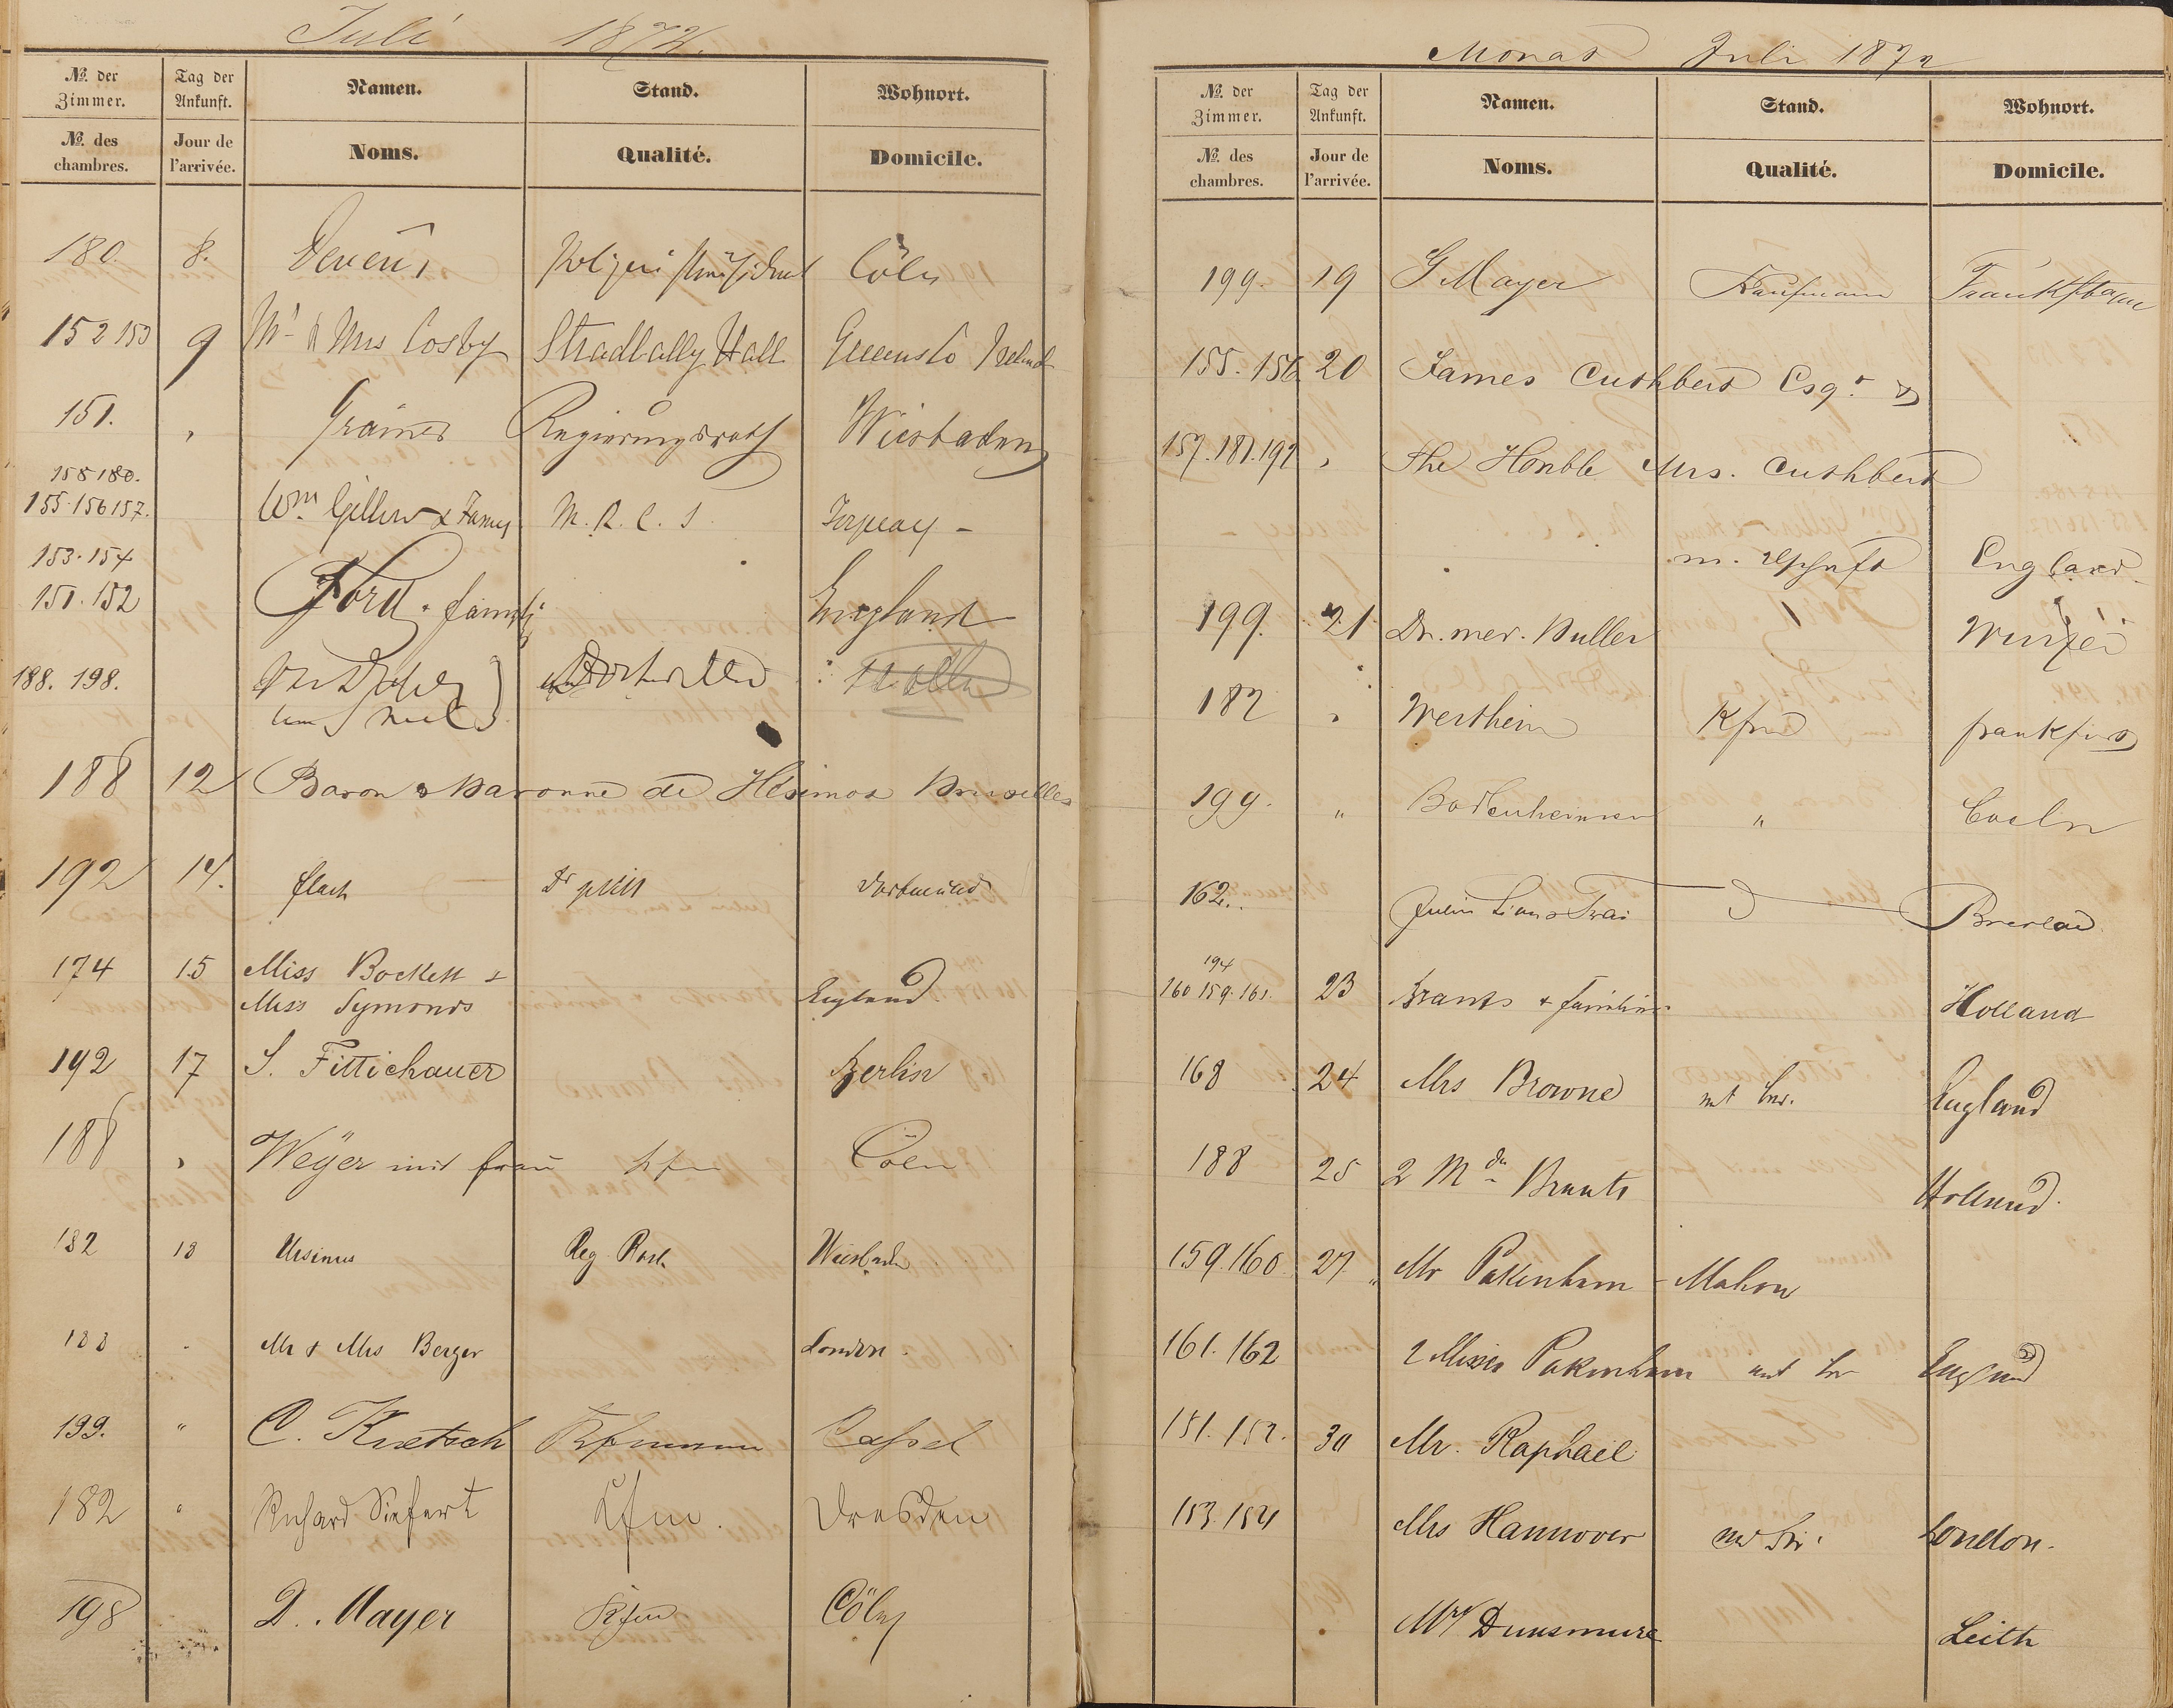 Juli 1872.
№. der Zimmer. Tag der Ankunft. Namen. Stand. Wohnort.
№. des chambres. Jour de l'arrivée. Noms. Qualité. Domicile.
180. 8. Cöln
152 153 9 Mr & Mrs Cosby Stradbally Hall Queens Co Ireland
151. " Regierungsrath Wiesbaden
158 180.
155. 156 157. Wm. Gillow & Famy M. R. C. S. Torquay -
153. 154
151. 152 Ford & family England
188. 198.
188 12 Baron & Baronne de Bruxelles
192 14. flach Dr phil Dortmund
174 15 Miss Bockett &
Miss Symonds England.
192 17 S. Fittichauer Berlin
188 " Weyer mit frau Kfm Cöln
182 18 Ursinus Reg Rath Wiesbaden
188 " Mr & Mrs Berger London.
199. " C. Kaufmann Cassel
182 " Richard Siefert Kfm. Dresden
198 D. Mayer Kfm Cöln
Monat Juli 1872
№. der Zimmer. Tag der Ankunft. Namen. Stand. Wohnort.
№. des chambres. Jour de l'arrivée. Noms. Qualité. Domicile.
199. 19 G Mayer Kaufmann
155. 156 20 James Cuthbert Esqr. &
157. 181. 192 " The Honble Mrs. Cuthbert
England.
199. 21 Dr. med.
182 " Wertheim Kfm frankfurt
199. " Bodenheimer " Coeln
162. Breslau
194
160 159. 161. 23 Brants & familie Holland
168 24 Mrs Browne England
188 25 2 Mdn Brants Holland.
159. 160. 27. Mr Pakenham - Mahon
161. 162 2 Misses Pakenham England
151. 152. 30 Mr. Raphael
153. 154 Mrs Hannover London.
Mr Dunsmure Leith